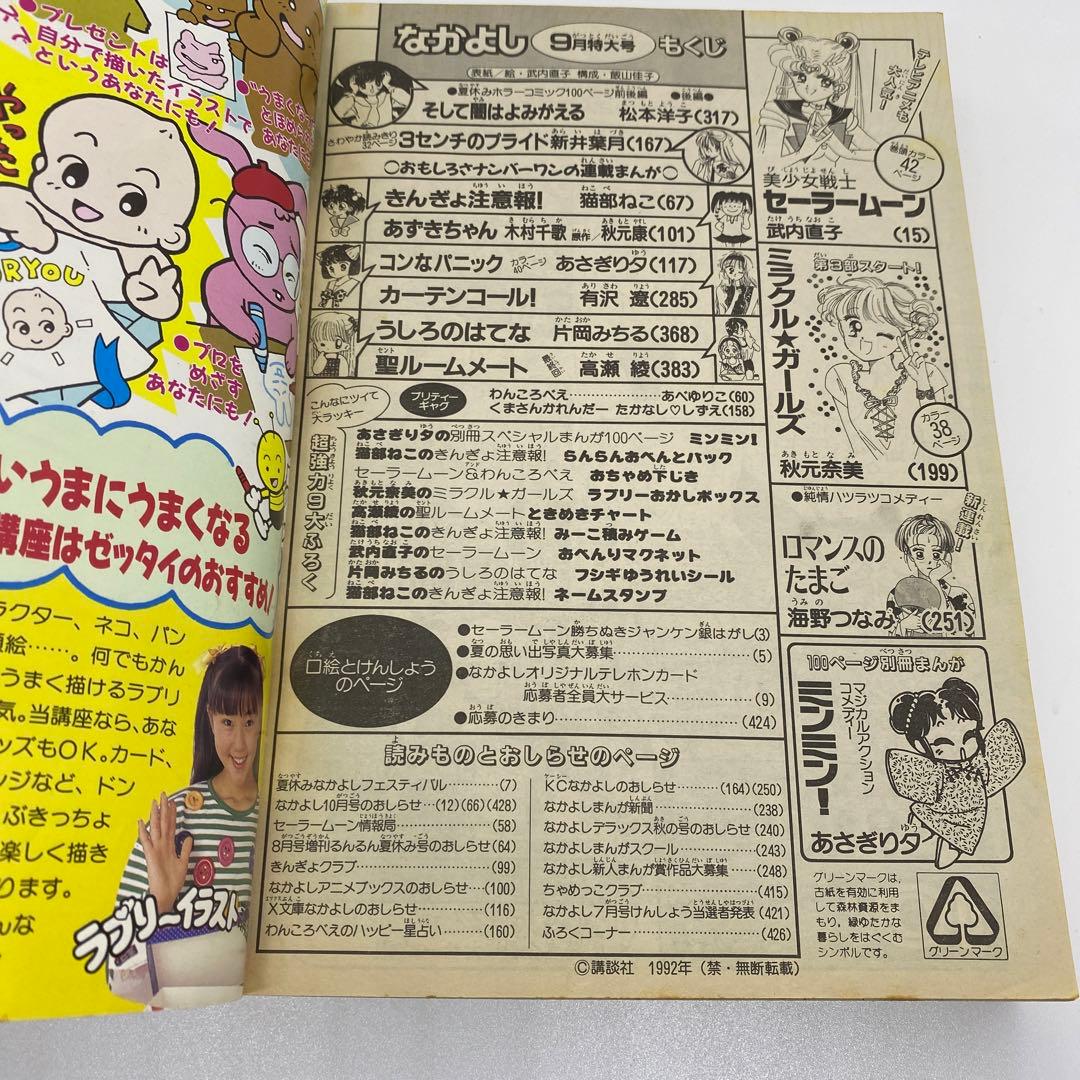 ●プレゼントは
自分で描いたイラストで
というあなたにも!
"うまくな
とほめら
あなたに
RYOU
●プロを
めざす
あなたにも!
いうまにうまくなる
講座はゼッタイのおすすめ!
ラクター、ネコ、パン
何でもかん
うまく描けるラブリ
気。当講座なら、あな
ッズもOK。カード、
ンジなど、ドン
ぶきっちょ
楽しく描き
ります。
んな
ラブリーイラスト
なかよし 9月特大号 もくじ
表紙/絵・武内直子 構成・飯山佳子
●夏休みホラーコミック100ページ前後編 ●後編●
そして闇はよみがえる 松本洋子(317)
さわやか読みきり32ページ 3センチのプライド 新井葉月(167)
○おもしろさナンバーワンの連載まんが○
きんぎょ注意報! 猫部ねこ(67)
あずきちゃん 木村千歌 原作/秋元康(101)
コンなパニック カラー40ページ あさぎり夕(117)
カーテンコール! 有沢 遼(285)
うしろのはてな 片岡みちる(368)
聖ルームメート 最終回 高瀬 綾(383)
プリティーギャグ
わんころべえ……あべゆりこ(60)
くまさんかれんだー たかなし♡しずえ(158)
こんなにツイて
大ラッキー
超強力9大ふろく
あさぎり夕の別冊スペシャルまんが100ページ ミンミン!
猫部ねこのきんぎょ注意報! らんらんおべんとパック
セーラームーン&わんころべえ おちゃめ下じき
秋元奈美のミラクル★ガールズ ラブリーおかしボックス
高瀬綾の聖ルームメート ときめきチャート
猫部ねこのきんぎょ注意報! みーこ積みゲーム
武内直子のセーラームーン おべんりマグネット
片岡みちるのうしろのはてな フシギゆうれいシール
猫部ねこのきんぎょ注意報! ネームスタンプ
口絵とけんしょう
のページ
●セーラームーン勝ちぬきジャンケン銀はがし(3)
●夏の思い出写真大募集……(5)
●なかよしオリジナルテレホンカード
応募者全員大サービス……(9)
●応募のきまり……(424)
読みものとおしらせのページ
夏休みなかよしフェスティバル……(7)
なかよし10月号のおしらせ…(12)(66)(428)
セーラームーン情報局……(58)
8月号増刊るんるん夏休み号のおしらせ(64)
きんぎょクラブ……(99)
なかよしアニメブックスのおしらせ…(100)
X文庫なかよしのおしらせ……(116)
わんころべえのハッピー星占い……(160)
KCなかよしのおしらせ……(164)(250)
なかよしまんが新聞……(238)
なかよしデラックス秋の号のおしらせ(240)
なかよしまんがスクール……(243)
なかよし新人まんが賞作品大募集……(248)
ちゃめっこクラブ……(415)
なかよし7月号けんしょう当選者発表(421)
ふろくコーナー……(426)
テレビアニメでも
大スター!
巻頭カラー
42
ページ
美少女戦士
セーラームーン
武内直子 (15)
第3部スタート!
ミラクル★ガールズ
カラー
38
ページ
秋元奈美 (199)
●純情ハツラツコメディー
新連載!
ロマンスの
たまご
海野つなみ (251)
100ページ別冊まんが
マジカルアクション
コメディー
ミンミン!
あさぎり夕
グリーンマークは、
古紙を有効に利用
して森林資源をま
もり、緑ゆたかな
暮らしをはぐくむ
シンボルです。
グリーンマーク
©講談社 1992年(禁・無断転載)